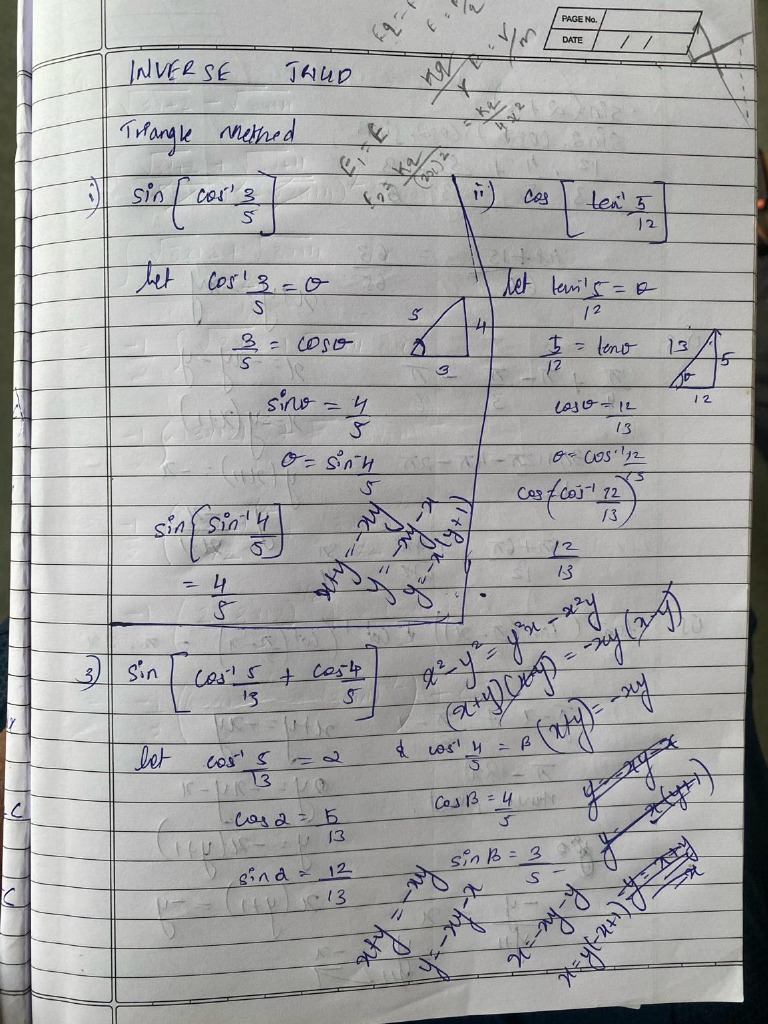 PAGE No.
DATE / /
INVERSE
Triangle Method
i) sin [cos⁻¹ 3/5]
let cos⁻¹ 3/5 = θ
3/5 = cosθ
5 4 3
sinθ = 4/5
θ = sin⁻¹ 4/5
sin [sin⁻¹ 4/5]
= 4/5
ii) cos [tan⁻¹ 5/12]
let tan⁻¹ 5/12 = θ
5/12 = tanθ
13 5 θ 12
cosθ = 12/13
θ = cos⁻¹ 12/13
cos (cos⁻¹ 12/13)
12/13
x+y = -xy
y = -xy-x
y = -x(y+1)
3) sin [cos⁻¹ 5/13 + cos⁻¹ 4/5]
let cos⁻¹ 5/13 = α & cos⁻¹ 4/5 = β
cosα = 5/13 cosβ = 4/5
sinα = 12/13 sinβ = 3/5
x² - y² = y²x - x²y
(x+y)(x-y) = -xy(x-y)
(x+y) = -xy
y = -xy-x
x(y+1)
x+y = -xy
y = -xy-x
x = -xy-y
x = y(-x+1)
E₁ = E
Kq/(2x)²
= Kq/4x²
Kq
E = V/m